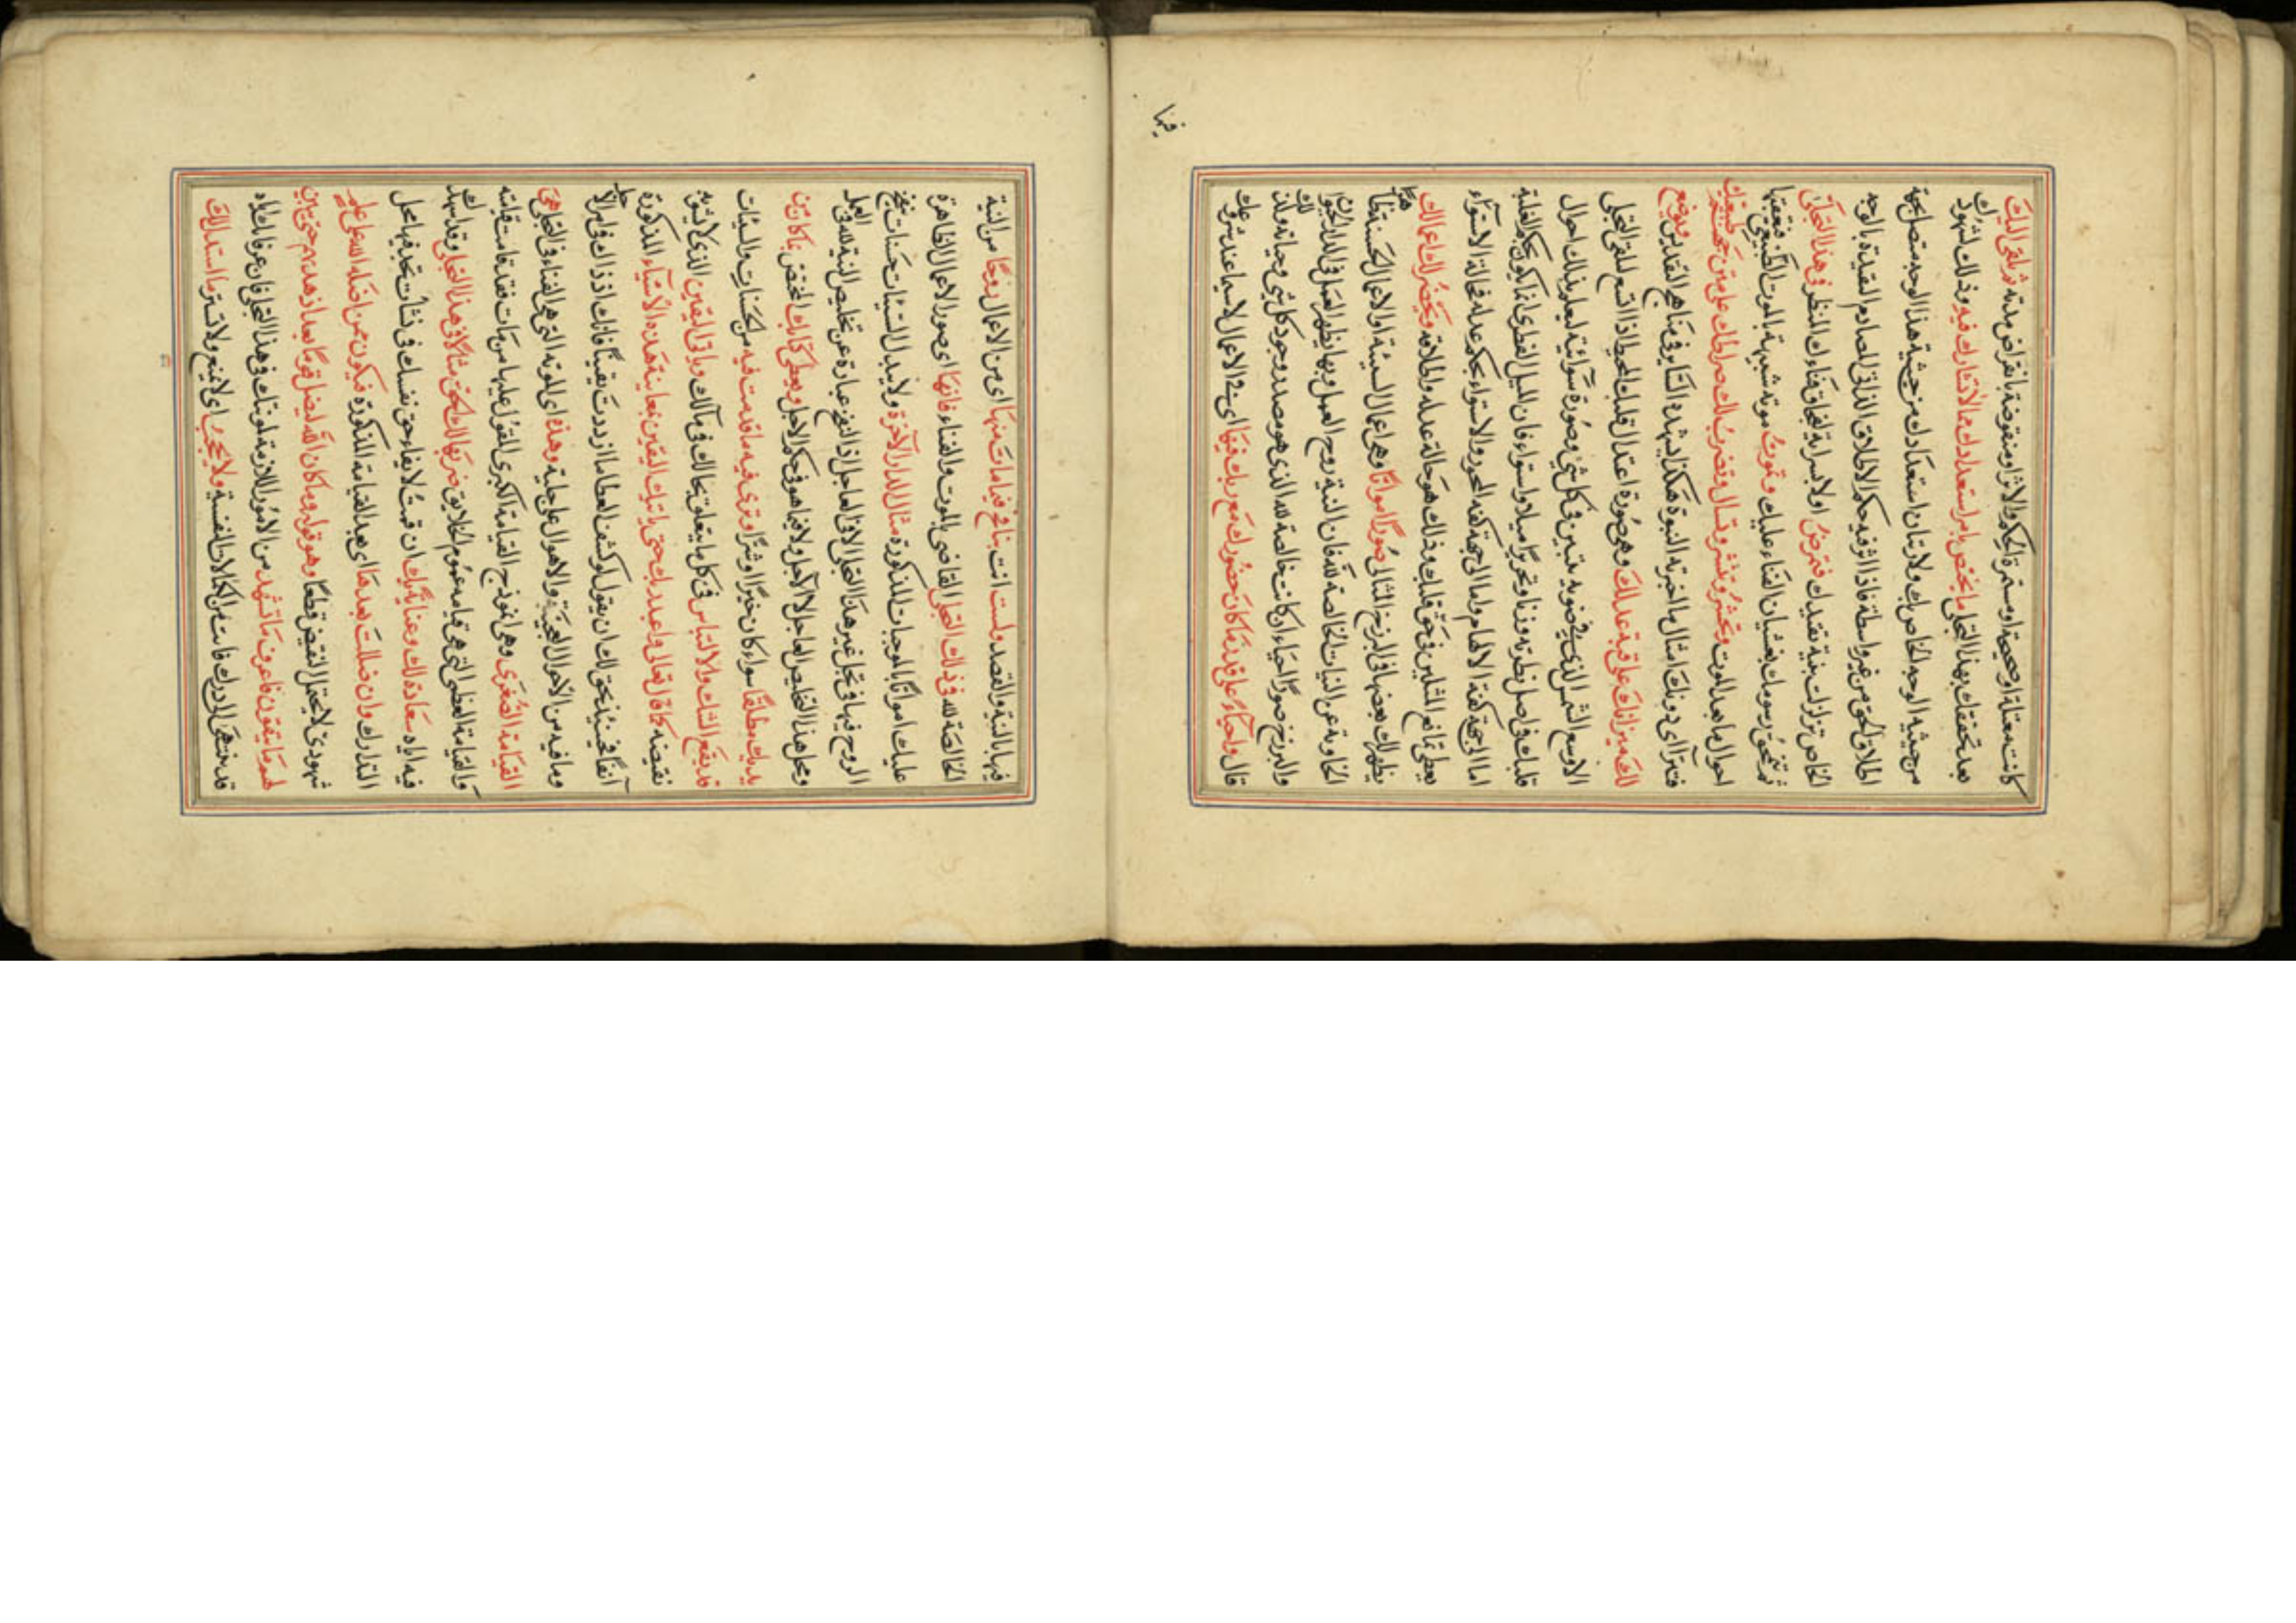 كانت معتلة او صحيحة او مستمرة الحكم والاثر او منقرضة بانقراض مدته ثم يلقى اليك
بعد تحققك بهذا التجلى ما يختص بامر استعدادك مما لا تشارك فيه وذلك لشهودك
من حيثية الوجه الخاص بك ولارتباط استعدادك من حيثية هذا الوجه متصل بجهة
اطلاق الحق من غير واسطة فاذا اثر فيه حكم الاطلاق الذاتى المصادم لتقيده بالوجه
الخاص تزلزلت بنية تقيدك فتمرض اولا بسراية فناءك المنظر فى هذا التجلى
ثم تمحق رسومك بغشيان الفناء عليك وتموت موتة شبيهة بالموت الطبيعى تعقبها
احوال ما بعد الموت وتحشر وتنشر وتسال ويضرب لك صراطك على متن جحيم طبيعتك
فتراءى دونك امثال ما اخبرته النبوة هكذا يشهده السائر فى مناهج التقديس ويوضع
لك ميزانك على قبة عدلك وهى صورة اعتدال قلبك المحيط اذا اتسع لتلقى التجلى
الاوسع الشمس الذى فى ضوئه يتبين فى كل شئ وصورة سوائية ليعلم بذلك احوال
قلبك فى اصل فطرته وزنا وتحريرا ميلا واستواء فان الميل الفطرى انما يكون بحكم الغلبة
اما الى جهة كفة الالهام واما الى جهة كفة الفجور والاستواء بحكم عدله فى حالة الاستواء
يعطى تمانع المثلين فى حق قلبك وذلك هو حالة عدله واطلاقه ويحضر لك اعمالك
يظهر لك بعضها فى البرزخ المثالى صورا امواتا وهى اعمال السيئة او الاعمال الحسنة ظاهرا
الخاوية عن النيات الخالصة لله فان النية روح العمل وبها يظهر العمل فى الدار الحيوان
والبرزخ صورا احياء ان كانت خالصة لله الذى هو مصدر وجود كل شئ وحياته ولذلك
قال واحياء على قدر ما كان حضورك مع ربك فيها اى فى الاعمال لاسيما عند شروعك
فيها
فيها بالنية والقصد ولست انت بنافخ فيما مات منها اى من الاعمال روحا من النية
الخالصة لله فى ذلك التجلى القاضى بالموت والفناء فانها اى صور الاعمال الظاهرة
عليك امواتا بالموجبات المذكورة مثال الدار الآخرة ولا تبدل السيئات حسنات بنفخ
الروح فيها فى تجل غير هذا التجلى الا فى العاجل اذ النفخ عبارة عن تخليص النية لله فى العمل
ومحل هذا التخليص العاجل لا الآجل ولا فيما هو فى حكم الآجل ويعطى كتابك المختص بما كان من
يديك مطلقا سواء كان خيرا او شرا وترى فيه ما قدمت فيه من الحسنات والسيئات
فيرتفع الشك والالتباس فى كل ما يتعلق بحالك ومآلك وياتى اليقين الذى لا يشوبه
نقيضه كما قال تعالى واعبد ربك حتى ياتيك اليقين بمعاينة هذه الاشياء المذكورة
آنفا فحينئذ يحق لك ان يقول لو كشف الغطا ما ازددت يقينا فانك اذ ذاك فى امر الآجل
وما فيه من الاحوال العجيبة والاهوال على جلية وهذه اى الموتة التى هى الفناء فى التجلى هى
القيامة الصغرى وهى انموذج القيامة الكبرى المقول عليها من مات فقد قامت قيامته
والقيامة العظمى التى هى قيامة عموم الخلايق ضربها لك الحق مثالا فى هذا التجلى وقد اشهدك
فيه اياه سعادة لك وعناية بك ان قمت لايفاء حق نفسك فى نشأت تجد فيها محل
التدارك وان ضللت بعدها اى بعد القيامة المذكورة فيكون ممن اضله الله على علم
شهودى لا يحتمل النقيض قطعا وهو قوله وما كان الله ليضل قوما بعد اذ هديهم حتى يبين
لهم ما يتقون فاعرف ما تشهد من الامور اللازمة لموتتك فى هذا التجلى فان عرفانك اياه
قد ينتهى الى درك فائت من الكمالات النفسية ولا يحجب اى لا يمنع ولا تستر ما استدللت